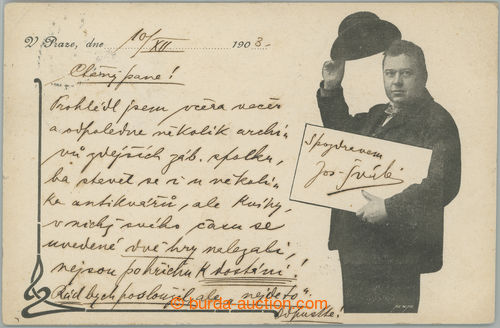 V Praze, dne 10/XII 1903.
Ctěný pane!
Prohlédl jsem včera večer
a odpoledne několik archi-
vů zdejších záb. spolků,
ba stavěl se i u několi-
ka antikvářů, ale knihy,
v nichž svého času se
uvedené dvě hry nalezali,
nejsou pohříchu k dostání!
Rád bych posloužil, ale „nejde to“.
Odpusťte!
S pozdravem
Jos. Šváb
burda-auction.com